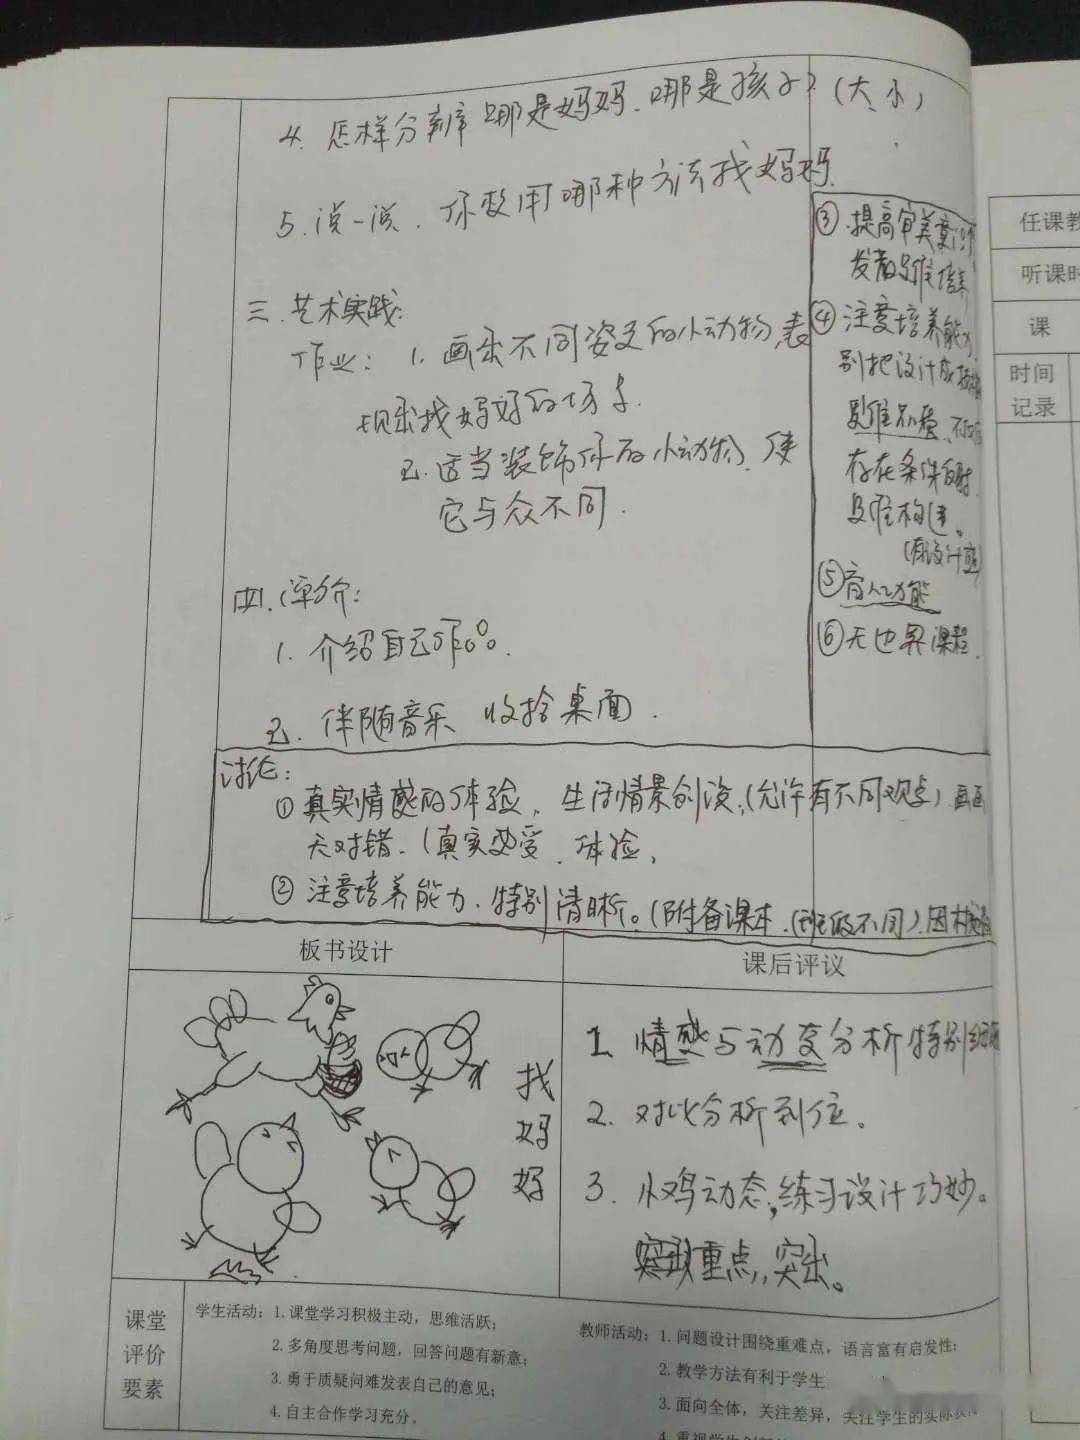 4. 怎样分辨哪是妈妈、哪是孩子?(大、小)
5. 说一说、你要用哪种方法找妈妈.
三.艺术实践:
作业: 1. 画出不同姿态的小动物,表
现出找妈妈的场
2. 适当装饰你的小动物、使
它与众不同.
四.评价:
1. 介绍自己作品.
2. 伴随音乐 收拾桌面.
③.提高审美意识
发散思维培养
④注意培养能力
别把设计成
思维
存在条件
思维构建。
⑤育人功能
⑥无边界课程.
讨论:
①真实情感的体验. 生活情景创设.(允许有不同观点).画画
无对错.(真实感受.体验.
②注意培养能力.特别清晰。(附备课本.(班级不同).因材施
板书设计
课后评议
找
妈
妈
1. 情感与动变分析特别细
2. 对比分析到位。
3. 小鸡动态,练习设计巧妙。
重点,突出。
课堂
评价
要素
学生活动: 1.课堂学习积极主动,思维活跃;
2.多角度思考问题,回答问题有新意;
3.勇于质疑问难发表自己的意见;
4.自主合作学习充分。
教师活动: 1.问题设计围绕重难点,语言富有启发性;
2.教学方法有利于学生
3.面向全体,关注差异,关注学生的实际
任课教
听课时
课
时间
记录